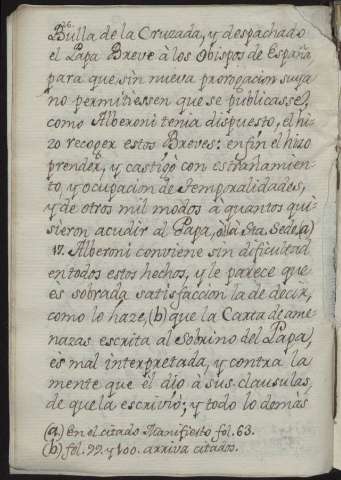 26.
Bulla de la Cruzada, y despachado
el Papa Breve à los Obispos de España
para que sin nueva prorogacion suya
no permitiessen que se publicasse,
como Alberoni tenia dispuesto, el hi-
zo recoger estos Breves: enfin el hizo
prender, y castigò con estrañamien-
to, y ocupacion de Temporalidades,
y de otros mil modos à quantos qui-
sieron acudir al Papa, ò la Sta. Sede (a)
17. Alberoni conviene sin dificultad
en todos estos hechos, y le parece que
ès sobrada satisfaccion la de decir,
como lo haze, (b) que la Carta de ame
nazas escrita al Sobrino del Papa,
ès mal interpretada, y contra la
mente que èl dio à sus clausulas,
de que la escriviò; y todo lo demàs
(a.) En el citado Manifiesto fol. 63.
(b) fol. 99. y 100. arriva citados.